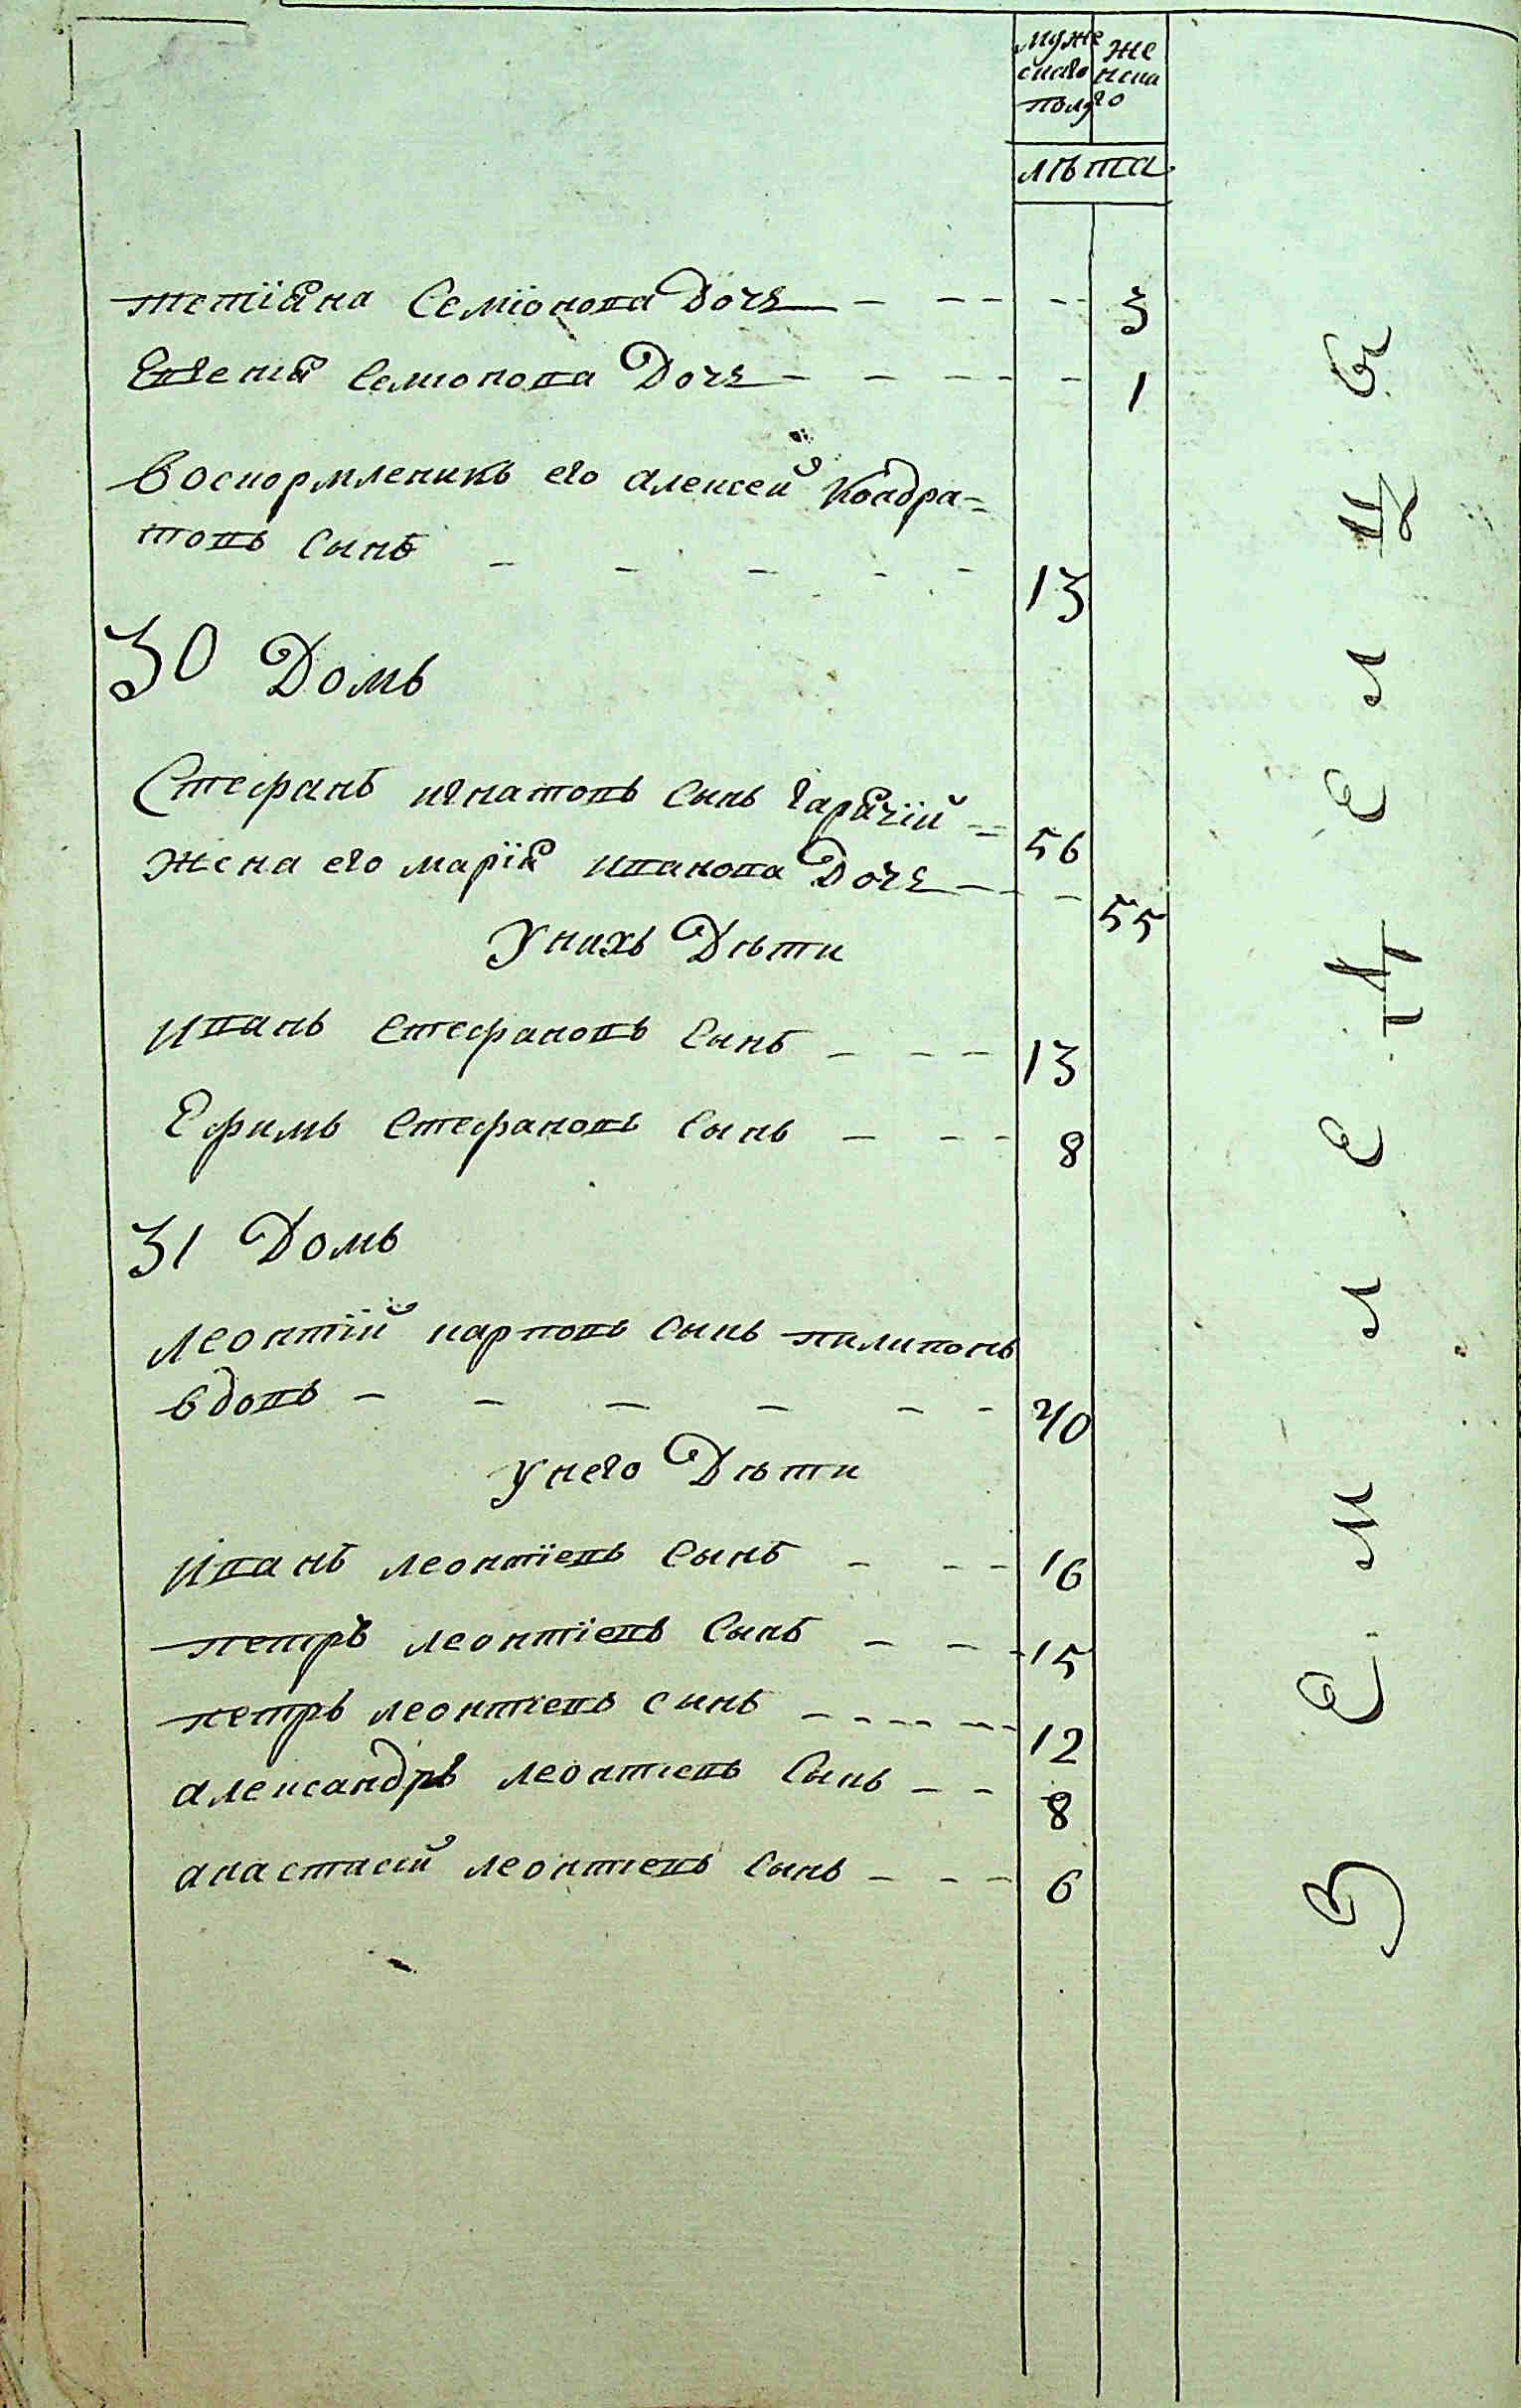 муже
скаго
полу
же
нска
го
лѣта
тетіяна Семіонова Дочь 3
Евгенія Семионова Дочь 1
Воскормленикъ его алексей Кондра=
товъ Сынъ 13
30 Домъ
Стефанъ игнатовъ Сынъ Гарячій 56
Жена его марія иванова Дочь 55
Унихъ Дѣти
иванъ Стефановъ Сынъ 13
Ефимъ Стефановъ Сынъ 8
31 Домъ
леонтій карповъ Сынъ пилипонъ
вдовъ 40
Унего Дѣти
иванъ леонтіевъ Сынъ 16
петръ леонтіевъ Сынъ 15
петръ леонтіевъ Синъ 12
александръ леонтіевъ Сынъ 8
анастасій леонтіевъ Сынъ 6
Земледелцы